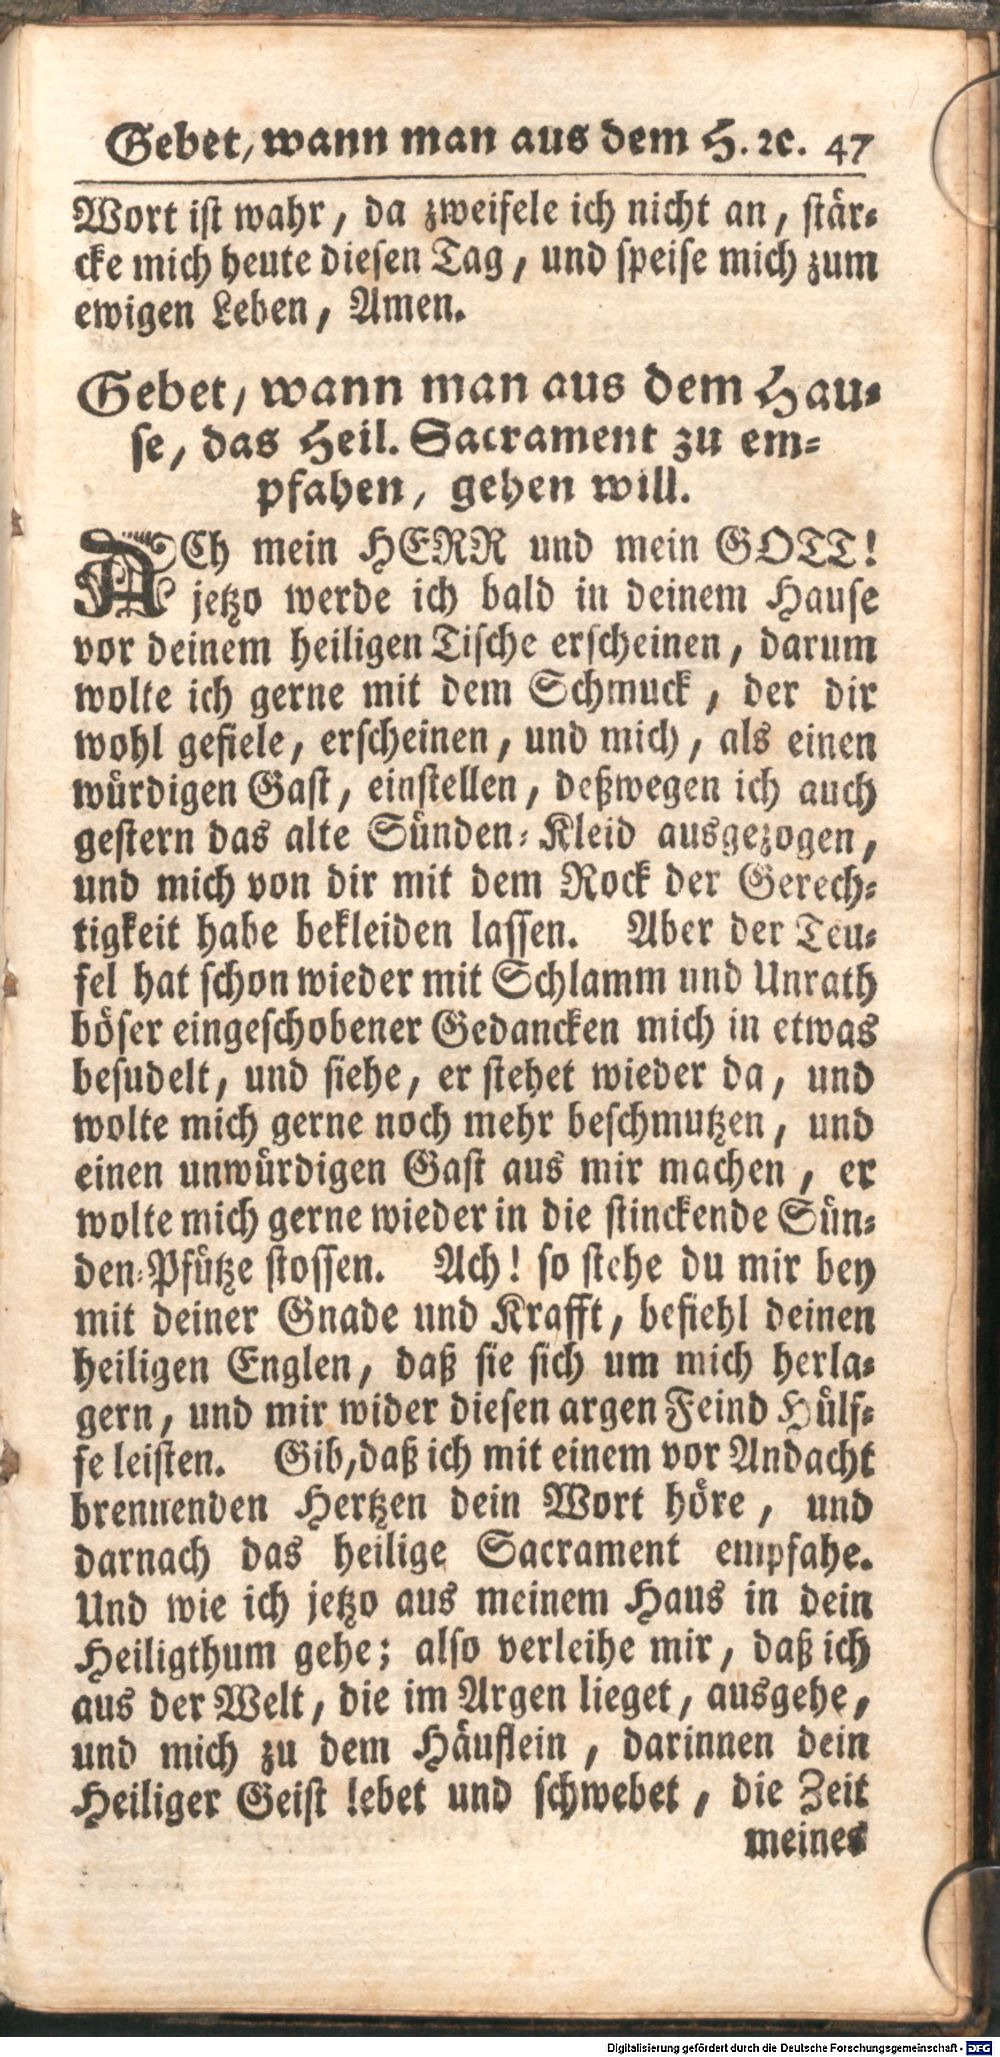 Gebet, wann man aus dem H. ꝛc. 47
Wort ist wahr, da zweifele ich nicht an, stär-
cke mich heute diesen Tag, und speise mich zum
ewigen Leben, Amen.
Gebet, wann man aus dem Hau-
se, das Heil. Sacrament zu em-
pfahen, gehen will.
ACh mein HERR und mein GOTT!
jetzo werde ich bald in deinem Hause
vor deinem heiligen Tische erscheinen, darum
wolte ich gerne mit dem Schmuck, der dir
wohl gefiele, erscheinen, und mich, als einen
würdigen Gast, einstellen, deßwegen ich auch
gestern das alte Sünden-Kleid ausgezogen,
und mich von dir mit dem Rock der Gerech-
tigkeit habe bekleiden lassen. Aber der Teu-
fel hat schon wieder mit Schlamm und Unrath
böser eingeschobener Gedancken mich in etwas
besudelt, und siehe, er stehet wieder da, und
wolte mich gerne noch mehr beschmutzen, und
einen unwürdigen Gast aus mir machen, er
wolte mich gerne wieder in die stinckende Sün-
den-Pfütze stossen. Ach! so stehe du mir bey
mit deiner Gnade und Krafft, befiehl deinen
heiligen Englen, daß sie sich um mich herla-
gern, und mir wider diesen argen Feind Hülf-
fe leisten. Gib, daß ich mit einem vor Andacht
brennenden Hertzen dein Wort höre, und
darnach das heilige Sacrament empfahe.
Und wie ich jetzo aus meinem Haus in dein
Heiligthum gehe; also verleihe mir, daß ich
aus der Welt, die im Argen lieget, ausgehe,
und mich zu dem Häuflein, darinnen dein
Heiliger Geist lebet und schwebet, die Zeit
meines
Digitalisierung gefördert durch die Deutsche Forschungsgemeinschaft - DFG